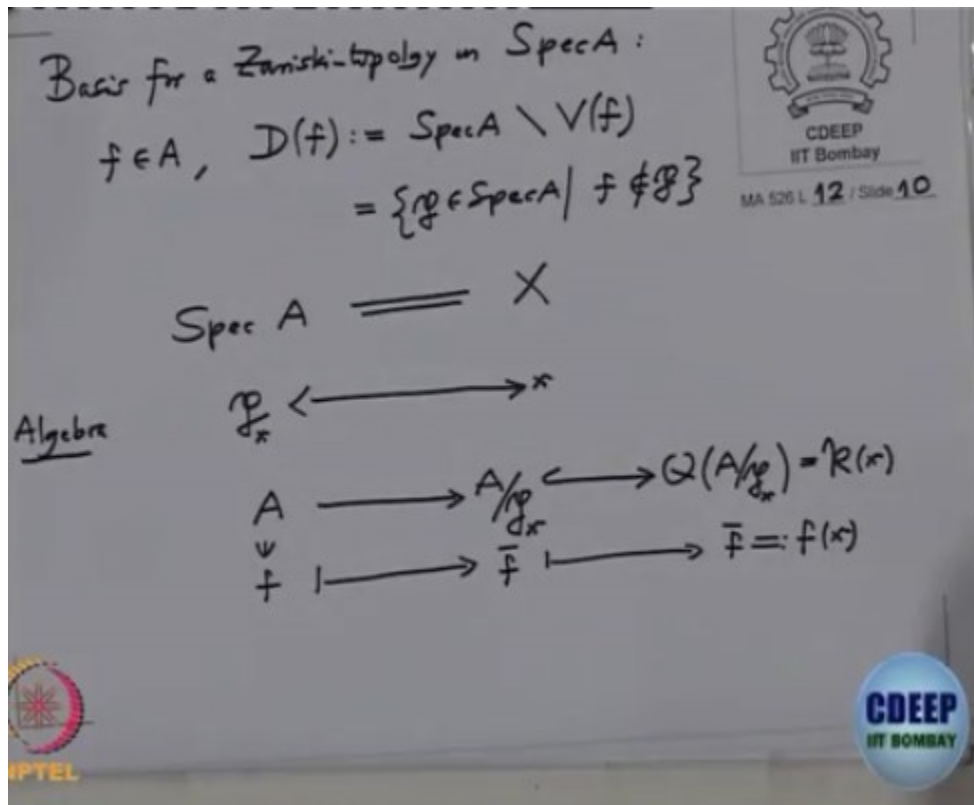 Basis for a Zariski-topology on Spec A :
f ∈ A, D(f) := Spec A \ V(f)
= {𝔭 ∈ Spec A | f ∉ 𝔭}
CDEEP
IIT Bombay
MA 526 L 12 / Slide 10
Spec A ═══ X
𝔭ₓ ⟷ x
Algebra
A ⟶ A/𝔭ₓ ↪ Q(A/𝔭ₓ) = k(x)
∪
f ⟼ f̄ ⟼ f̄ =: f(x)
NPTEL
CDEEP
IIT BOMBAY